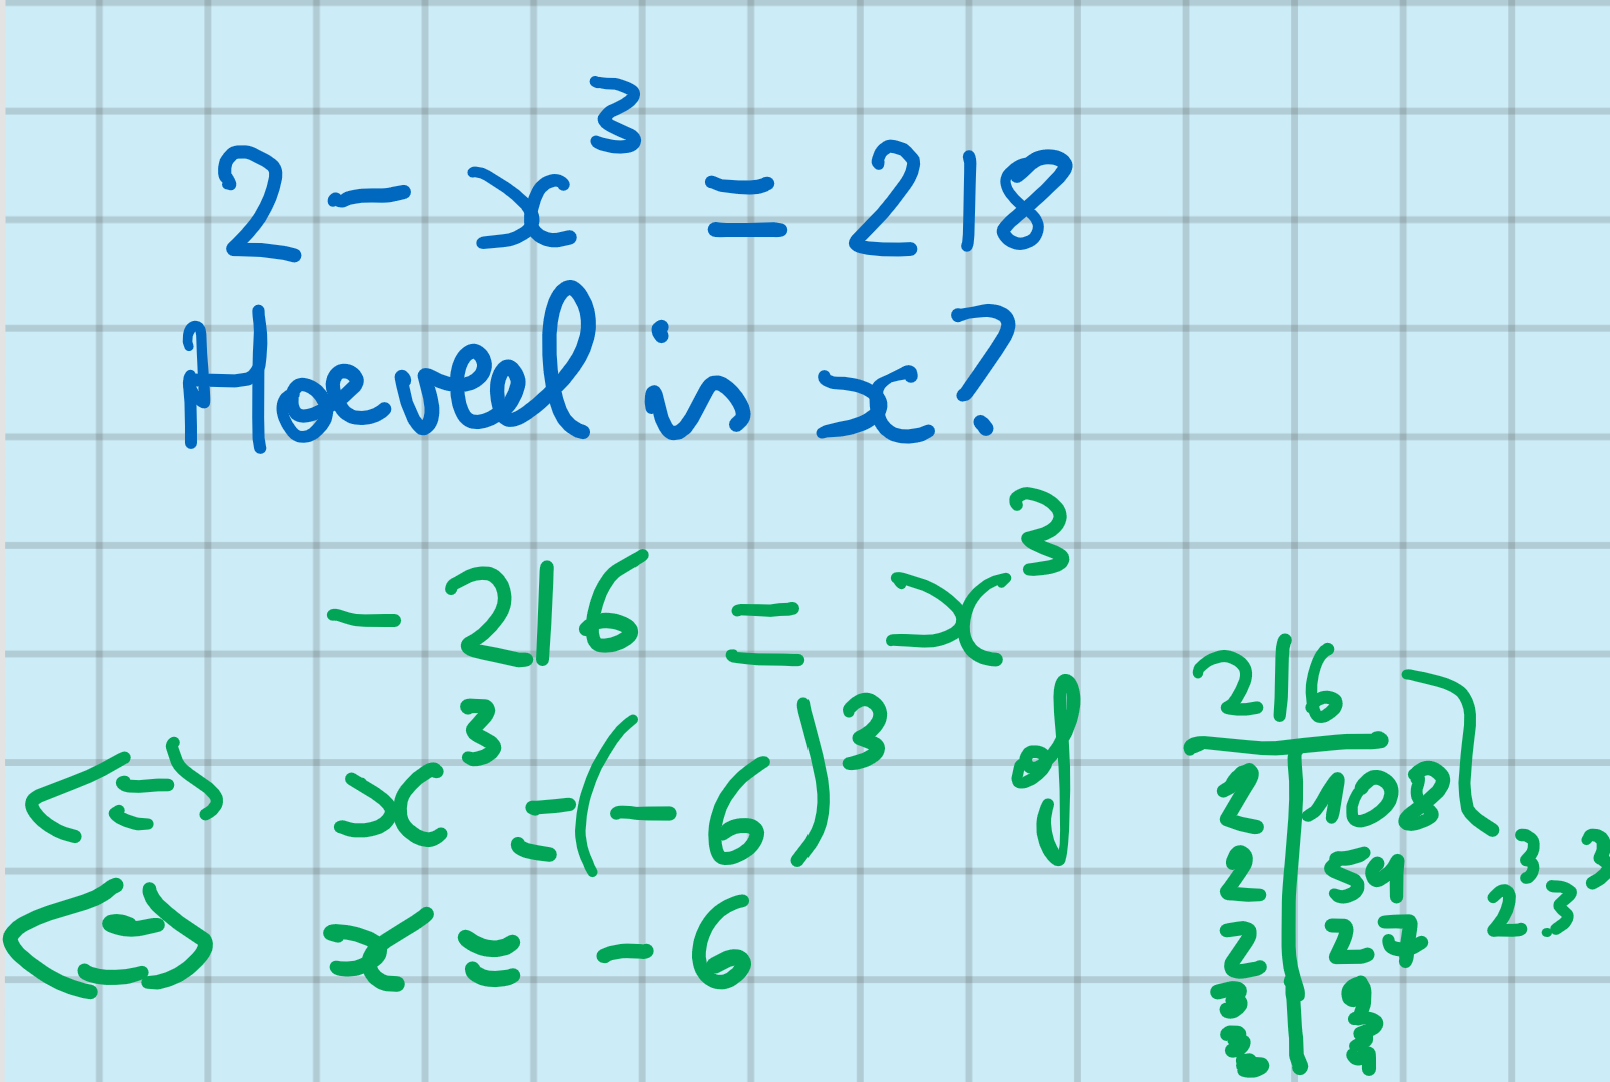 2 - x³ = 218
Hoeveel is x?
- 216 = x³
<=> x³ = (- 6)³ of
<=> x = - 6
216
2 | 108
2 | 54
2 | 27
2³.3³
3
3